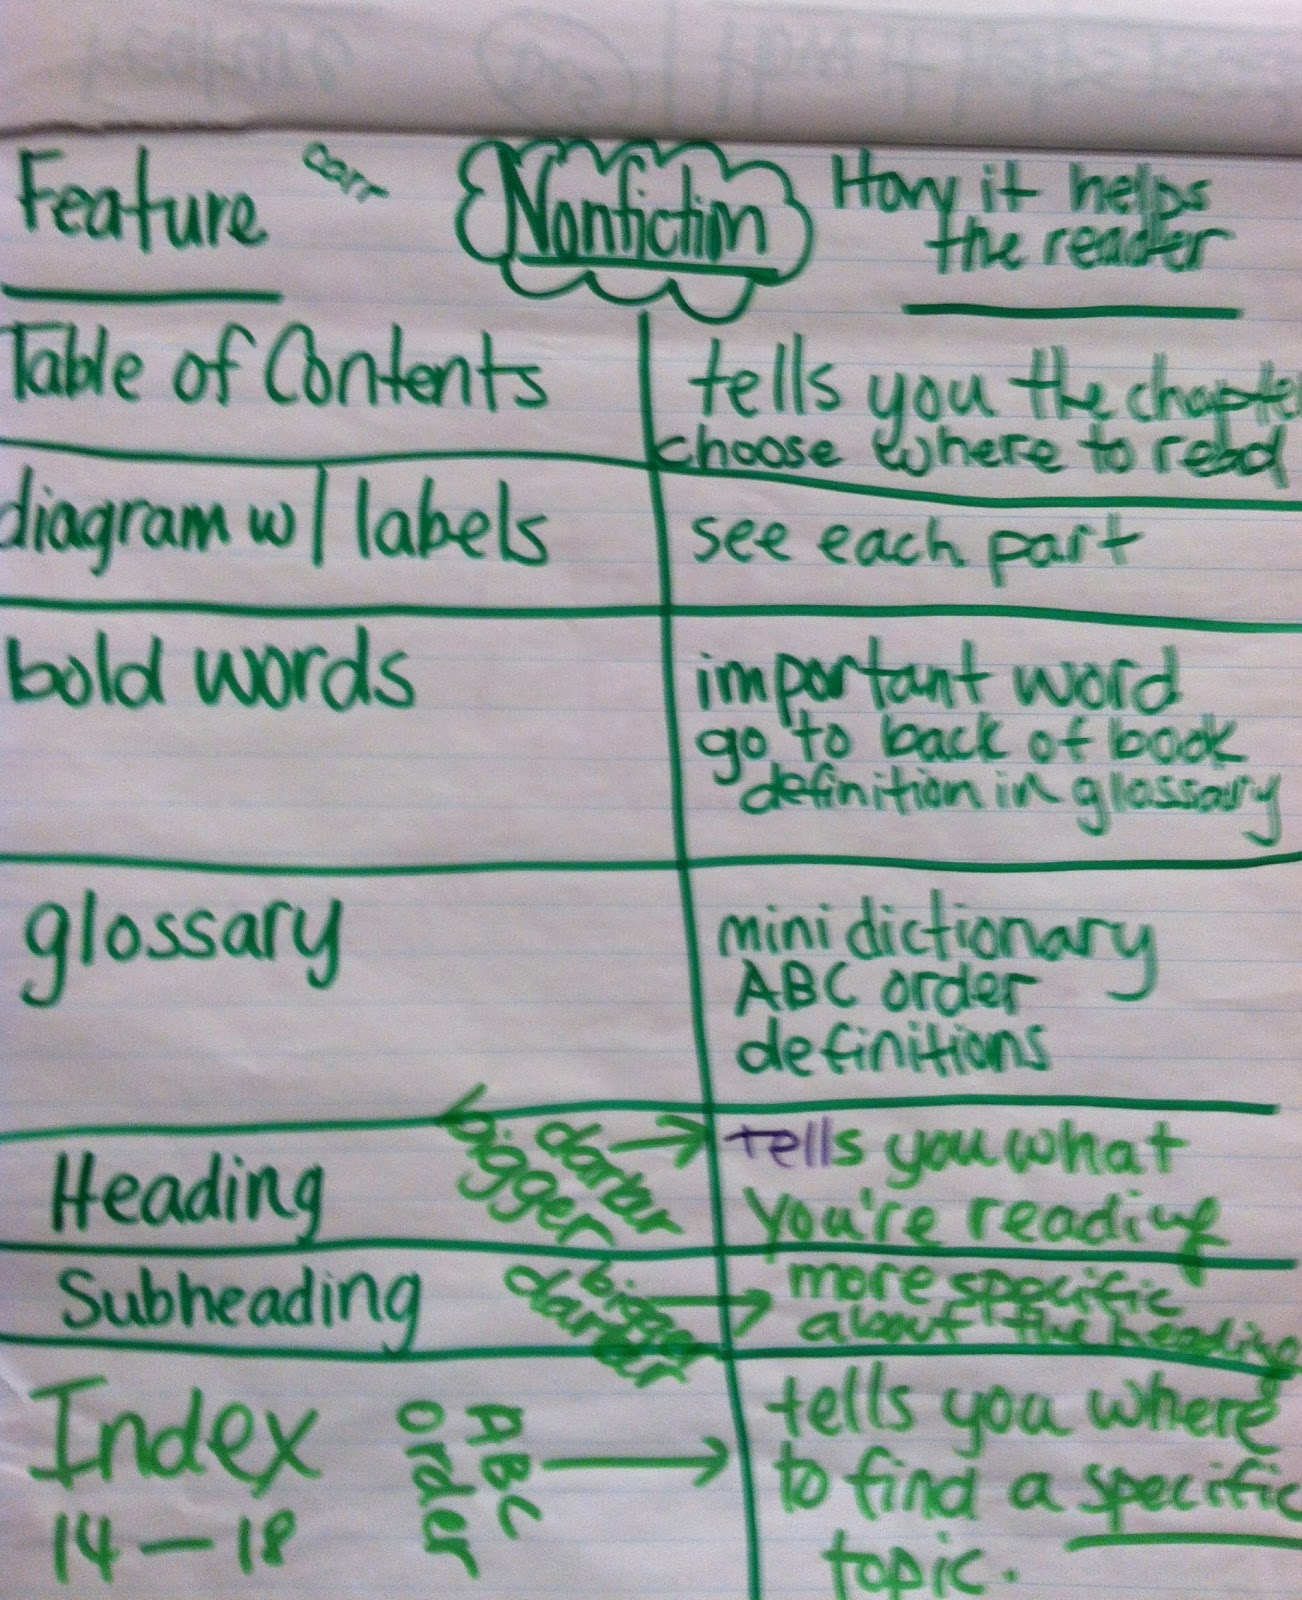 Feature
corr
Nonfiction
How it helps
the reader
Table of Contents
tells you the chapter
choose where to read
diagram w/ labels
see each part
bold words
important word
go to back of book
definition in glossary
glossary
mini dictionary
ABC order
definitions
Heading
bigger
darker
tells you what
you're reading
Subheading
bigger
darker
more specific
about the heading
Index
14-18
ABC
order
tells you where
to find a specific
topic.